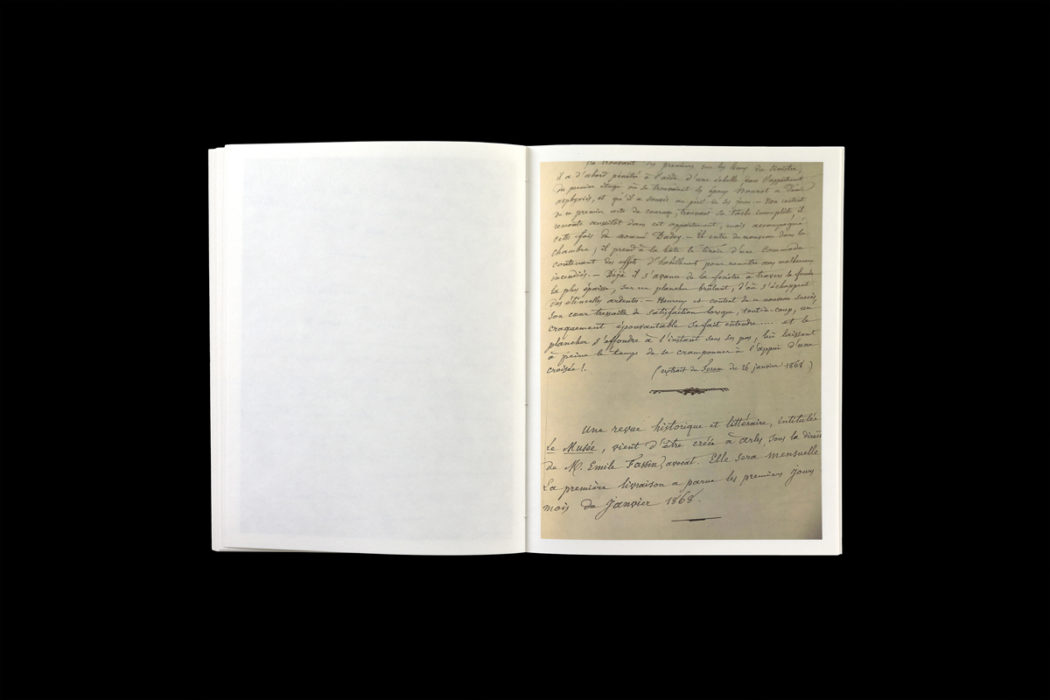 se trouvant des premiers sur les lieux du sinistre,
il a d'abord pénétré à l'aide d'une échelle, dans l'appartement
du premier étage où se trouvaient les époux Mourret à demi
asphyxiés, et qu'il a sauvés au péril de ses jours. — Non content
de ce premier acte de courage, trouvant sa tâche incomplète, il
remonte aussitôt dans cet appartement, mais accompagné
cette fois du nommé Baday. — Il entre de nouveau dans la
chambre ; il prend à la hâte le tiroir d'une commode
contenant des effets d'habillement pour remettre aux malheureux
incendiés. — Déjà il s'avance de la fenêtre à travers la fumée
la plus épaisse, sur un plancher brûlant, d'où s'échappent
des étincelles ardentes. — Heureux et content de ce nouveau succès,
son cœur tressaille de satisfaction lorsque, tout-à-coup, un
craquement épouvantable se fait entendre .... et le
plancher s'effondre à l'instant sous ses pas, lui laissant
à peine le temps de se cramponner à l'appui d'une
croisée !.
(extrait du du 26 janvier 1868.)
Une revue historique et littéraire, intitulée
Le Musée, vient d'être créée à Arles sous la
de M. Emile Fassin, avocat. Elle sera mensuelle
La première livraison a parue les premiers jours
mois de Janvier 1868.